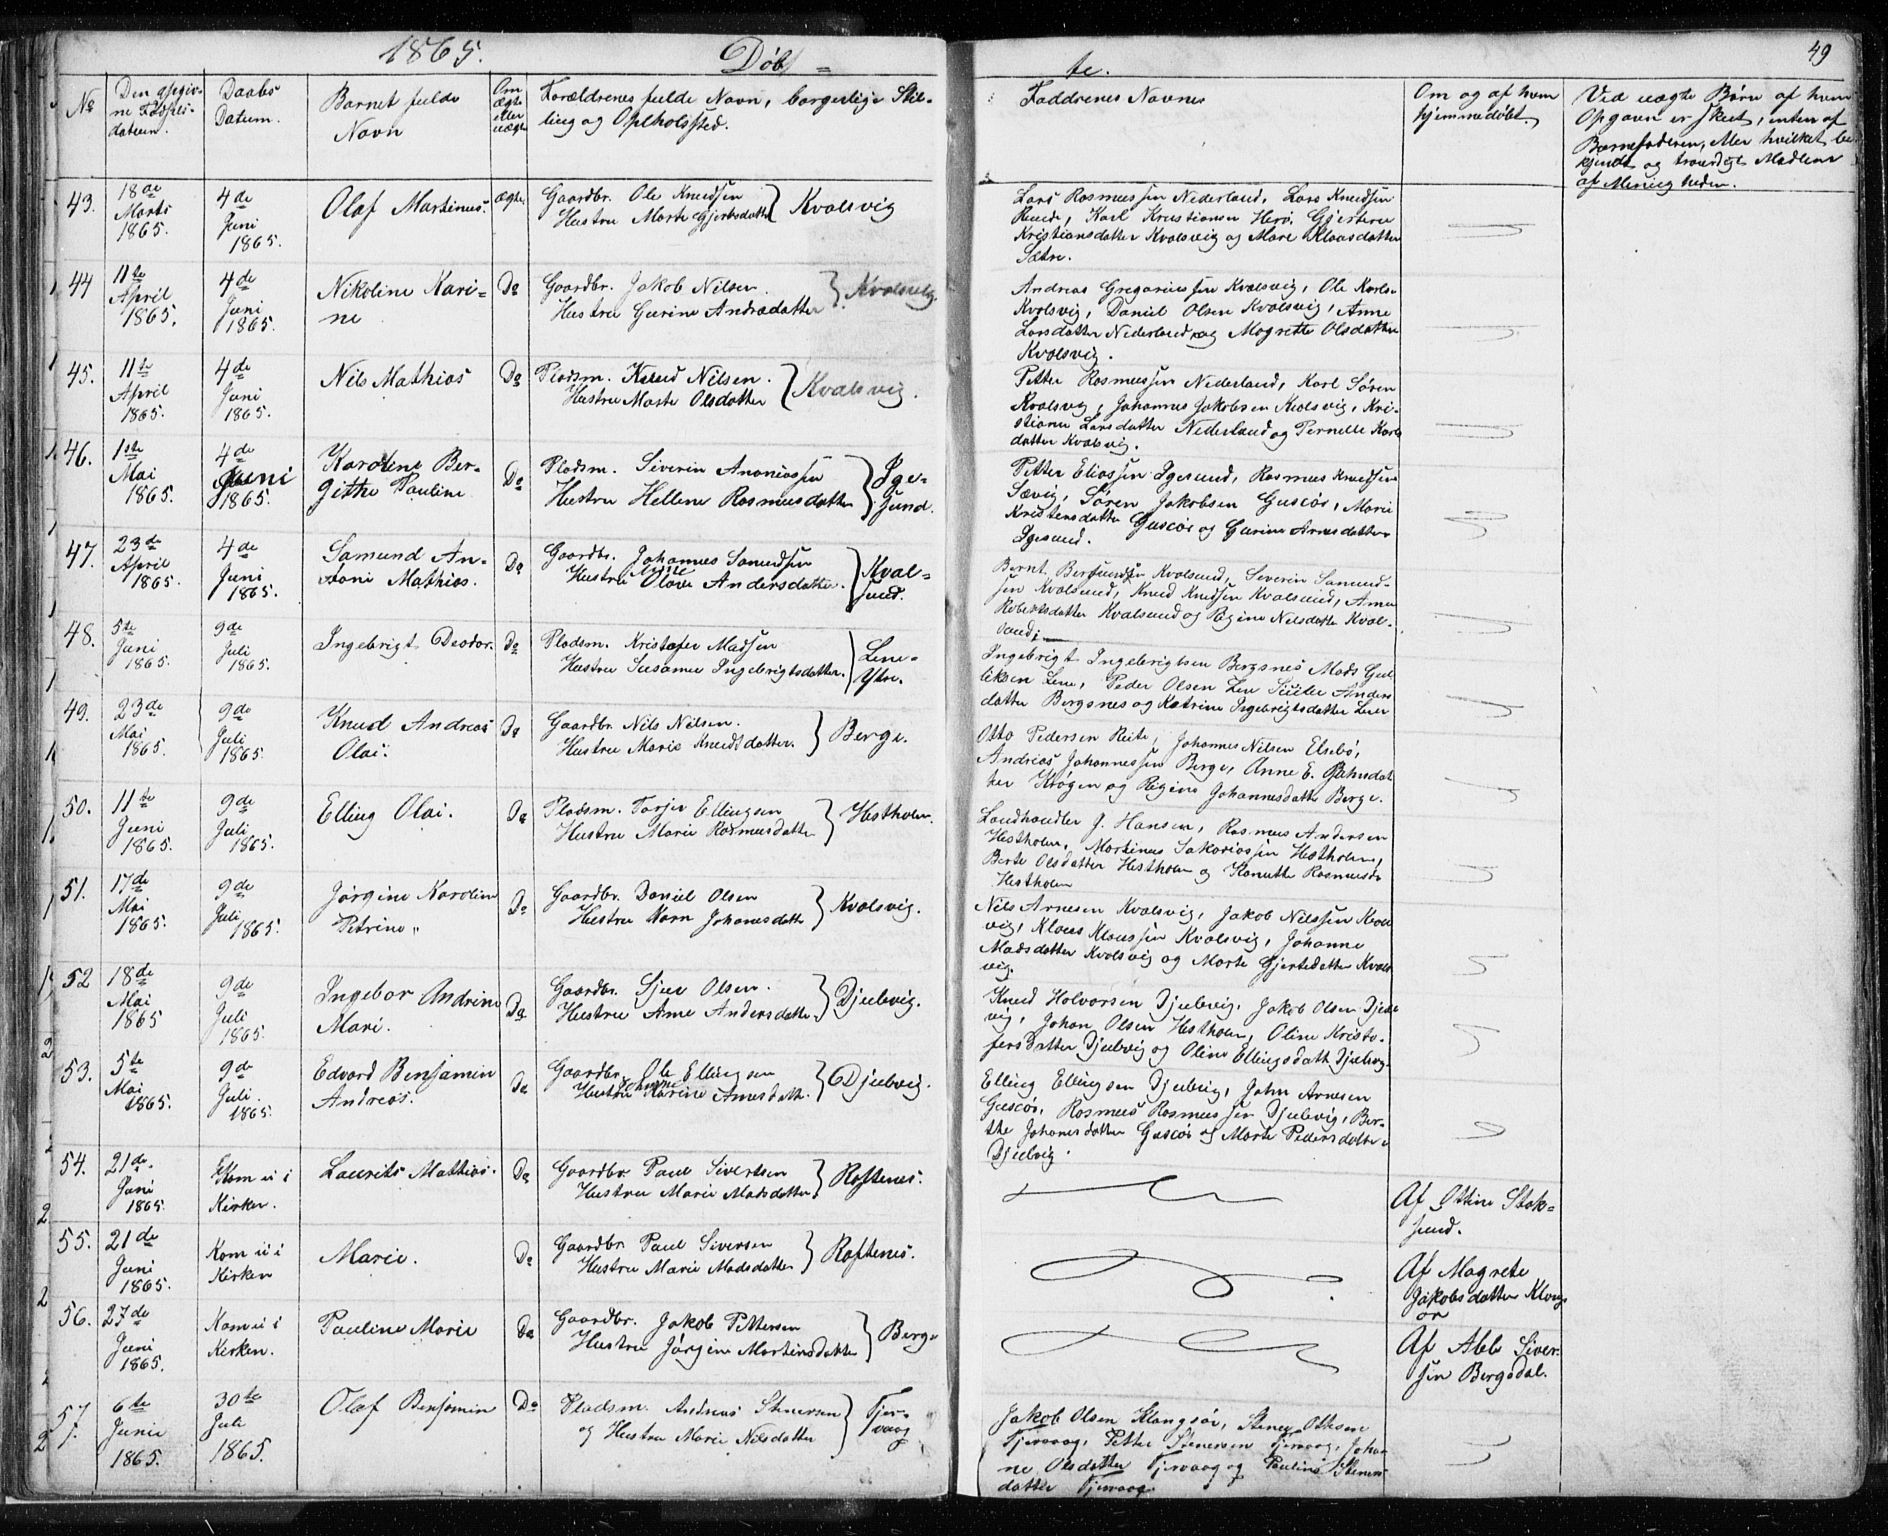 1865.
Døb =
te.
49
No
Den opgiv-
ne Fødsels-
datum.
Daabs
Datum.
Barnet fulde
Navn
Om
ægte
eller
uægte
Forældrenes fulde Navn, borgerlige Stil-
ling og Opholdssted.
Faddrenes Navne
Om og af hvem
hjemmedøbt.
Ved uægte Børn af hvem
Opgaven er skeet, enten af
Barnefaderen, eller hvilket be-
kjendt og troværdigt Medlem
af Menigheden.
43.
18de
Marts
1865.
4de
Juni
1865.
Olaf Martinus.
ægte
Gaardbr. Ole Knudsen
Hustru Marte Gjertsdatter
Kvalsvig
Lars Rasmussen Nederland, Lars Knudsen
Karl Kristiansen Herø, Gjertru
Kristiansdatter Kvalsvig og Mare Klausdatter
Sætre.
44
11te
April
1865.
4de
Juni
1865.
Nikoline Kari=
ne
Do
Gaardbr. Jakob Nilsen.
Hustru Gurine Andreadatter
Kvalsvig
Andreas Gregoriussen Kvalsvig, Ole Karls.
Kvalsvig, Daniel Olsen Kvalsvig, Anne
Larsdatter Nederland, og Magrette Olsdatter
Kvalsvig.
45.
11te
April
1865.
4de
Juni
1865.
Nils Mathias
Do
Pladsm. Knud Nilsen.
Hustru Marte Olsdatter
Kvalsvig.
Petter Rasmussen Nederland, Karl Søren
Kvalsvig, Johannes Jakobsen Kvalsvig, Kri-
stiane Larsdatter Nederland og Pernelle Karls
datter Kvalsvig.
46.
1ste
Mai
1865.
4de
Juni
1865.
Karolene Ber-
githe Pauline
Do
Pladsm. Siverin Ananiassen
Hustru Hellene Rasmusdatter
Ige-
sund.
Petter Eliassen Igesund, Rasmus Knudsen
Sævig, Søren Jakobsen Guscør, Marie
Kristensdatter Guscør og Gurine Arnesdatter
Igesund.
47.
23de
April
1865.
4de
Juni
1865.
Samund An-
toni Mathias.
Do
Gaardbr. Johannes Samundsen
Hustru Olave Andersdatter.
Kval=
sund.
Bernt Kvalsund, Severin Samund-
sen Kvalsund, Knud Knudsen Kvalsund, Anne
Robertsdatter Kvalsund og Regine Nilsdatter Kval-
sund.
48.
5te
Juni
1865.
9de
Juli
1865.
Ingebrigt Deodor.
Do
Pladsm. Kristofer Madsen
Hustru Susanne Ingebrigtsdatter.
Lene-
Ytre.
Ingebrigt Ingebrigtsen Bergsnes Mads Gul-
liksen Lene, Peder Olsen Lene Anders
datter Bergsnes og Katrine Ingebrigtsdatter Lene
49.
23de
Mai
1865.
9de
Juli
1865.
Knud Andreas
Olai.
Do
Gaardbr. Nils Nilsen.
Hustru Marie Knudsdatter.
Berge.
Otto Pedersen Reite, Johannes Nilsen Elsebø,
Andreas Johannessen Berge, Anne E.
ter Krøgen og Regine Johannesdatter Berge.
50.
11te
Juni
1865.
9de
Juli
1865.
Elling Olai.
Do
Pladsm. Torjer Ellingsen
Hustru Marie Rasmusdatter
Hestholm.
Landhandler J. Hansen, Rasmus Andersen
Hestholm, Martinus Sakariassen Hestholm,
Berte Olsdatter Hestholm og Kanutte Rasmusd.
Hestholm
51.
17de
Mai
1865.
9de
Juli
1865.
Jørgine Karoline
Petrine
Do
Gaardbr. Daniel Olsen
Hustru Karn Johanesdatter
Kvalsvig.
Nils Arnesen Kvalsvig, Jakob Nilssen Kval-
vig, Klaus Klaussen Kvalsvig, Johanne
Madsdatter Kvalsvig og Marte Gjertsdatter Kvals-
vig.
52
18de
Mai
1865
9de
Juli
1865.
Ingebor Andrine
Mari.
Do
Gaardbr. Sjur Olsen.
Hustru Ane Andersdatter.
Djubvig.
Knud Halvorsen Djubvig, Jakob Olsen Djub-
vig, Johan Olsen Hestholm, Oline Kristo-
fersdatter Djubvig og Oline Ellingsdatt. Djubvig.
53.
5te
Mai
1865.
9de
Juli.
1865.
Edvard Benjamin
Andreas.
Do
Gaardbr. Ole Ellingsen
Hustru Karine Arnesdatt.
Djubvig.
Elling Ellingsen Djubvig, John Arnesen
Guscør, Rasmus Rasmussen Djubvig, Ber-
the Johanesdatter Guscør og Marte Pedersdatter
Djubvig.
54.
21de
Juni
1865.
Kom ei i
Kirken.
Laurits Mathias.
Do
Gaardbr. Paul Sivertsen
Hustru Marie Madsdatter
Raftenes.
Af Ottine Stok=
sund.
55.
21de
Juni
1865.
Kom ei i
Kirken
Marie.
Do
Gaardbr. Paul Siversen
Hustru Marie Madsdatter
Raftenes.
Af Magrete
Jakobsdatter Klungs-
ør
56.
27de
Juni
1865.
Kom ei i
Kirken.
Pauline Marie
Do
Gaardbr. Jakob Pettersen
Hustru Jørgine Martinsdatter
Berge
Af Abb Siver-
sen Bergsdal.
57.
6te
Juni
1865.
30te
Juli
1865.
Olaf Benjamin
Do
Pladsm. Andreas Stenersen
og Hustru Marie Nilsdatter
Tjer-
vaag
Jakob Olsen Klungsør, Stener Ottesen
Tjervaag, Petter Stenersen Tjervaag, Johan-
ne Olsdatter Tjervaag og Pauline Steners-
datter Tjervaag.